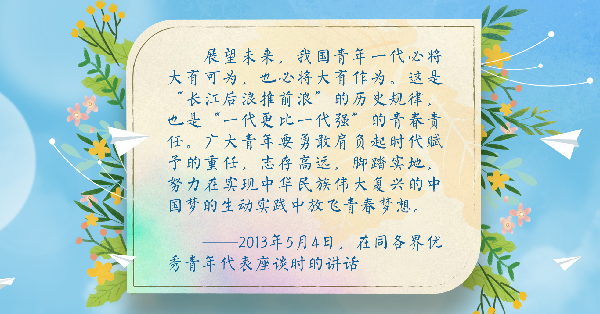 展望未来，我国青年一代必将
大有可为，也必将大有作为。这是
“长江后浪推前浪”的历史规律，
也是“一代更比一代强”的青春责
任。广大青年要勇敢肩负起时代赋
予的重任，志存高远，脚踏实地，
努力在实现中华民族伟大复兴的中
国梦的生动实践中放飞青春梦想。
——2013年5月4日，在同各界优
秀青年代表座谈时的讲话